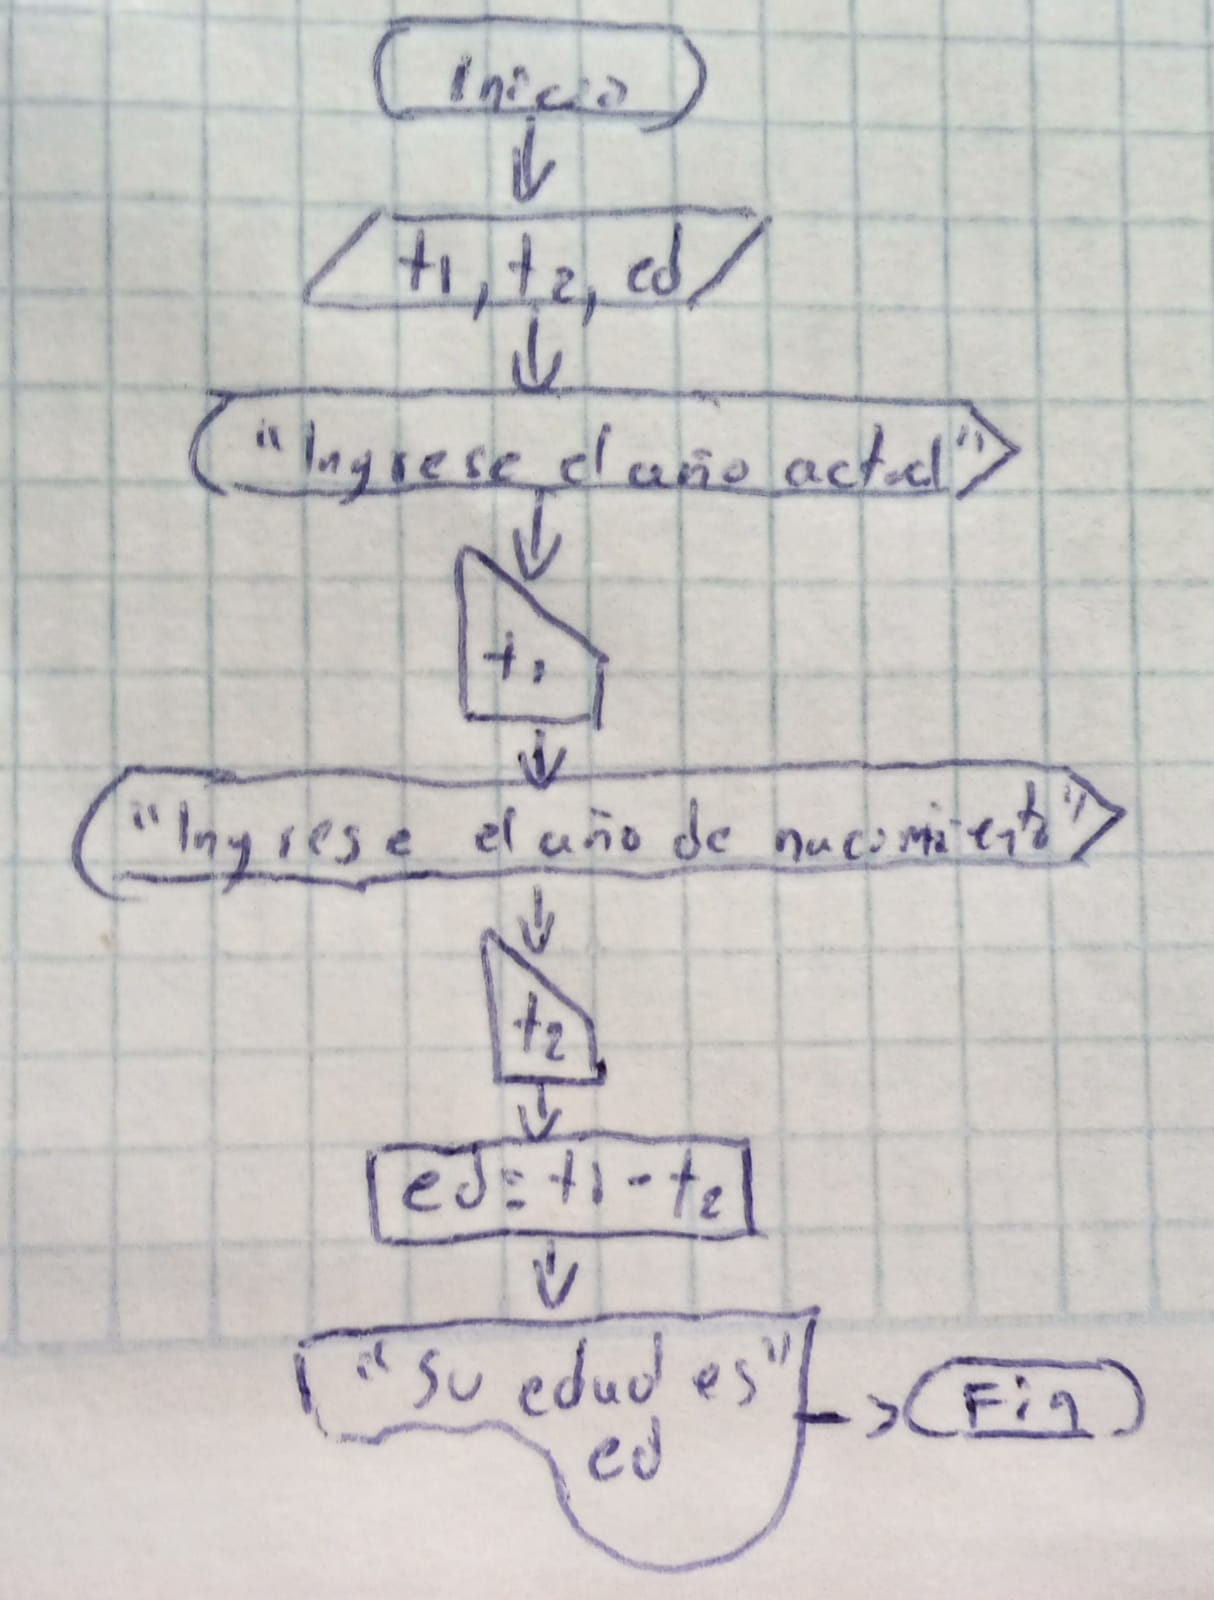 Inicio
t1, t2, ed
"Ingrese el año actual"
t1
"Ingrese el año de nacimiento"
t2
ed = t1 - t2
"Su edad es"
ed
Fin